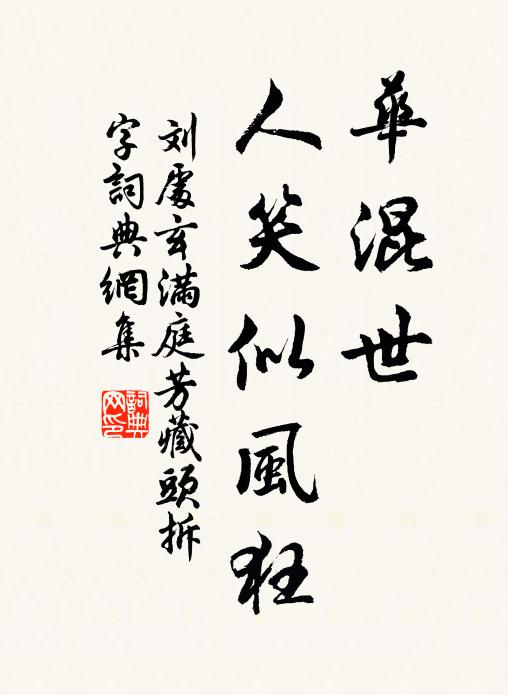 華混世
人笑似風狂
刘處玄满庭芳藏頭拆
字詞典網集
詞典网印